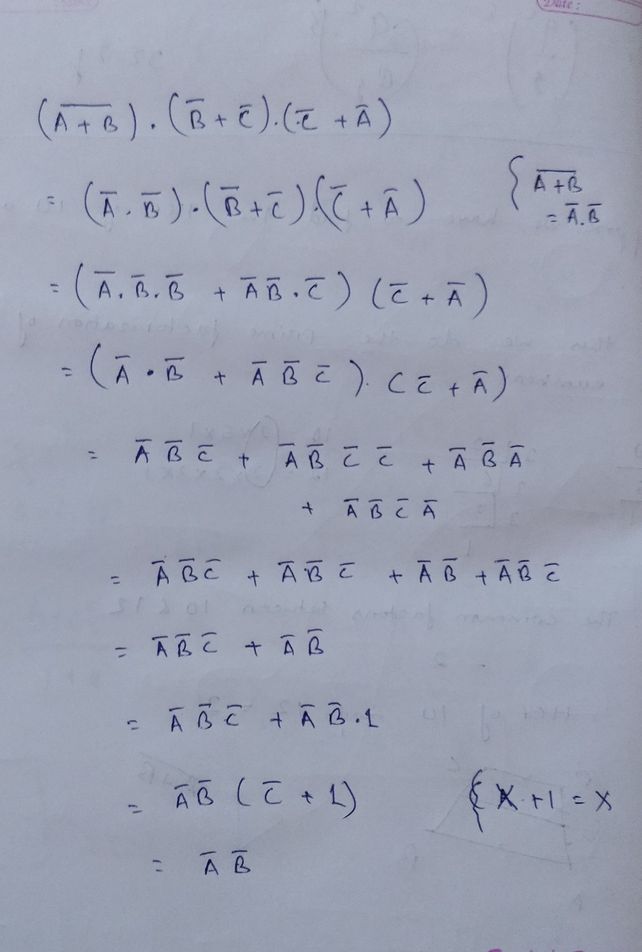 Date :
(A̅ ̅+̅ ̅B̅) . (B̅ + C̅).(C̅ + A̅)
= (A̅ . B̅) . (B̅ + C̅) . (C̅ + A̅) { A̅ ̅+̅ ̅B̅
= A̅.B̅
= (A̅ . B̅ . B̅ + A̅ B̅ . C̅) (C̅ + A̅)
= (A̅ . B̅ + A̅ B̅ C̅). (C̅ + A̅)
= A̅ B̅ C̅ + A̅ B̅ C̅ C̅ + A̅ B̅ A̅
+ A̅ B̅ C̅ A̅
= A̅ B̅ C̅ + A̅ B̅ C̅ + A̅ B̅ + A̅ B̅ C̅
= A̅ B̅ C̅ + A̅ B̅
= A̅ B̅ C̅ + A̅ B̅ . 1
= A̅ B̅ (C̅ + 1) { X + 1 = X
= A̅ B̅